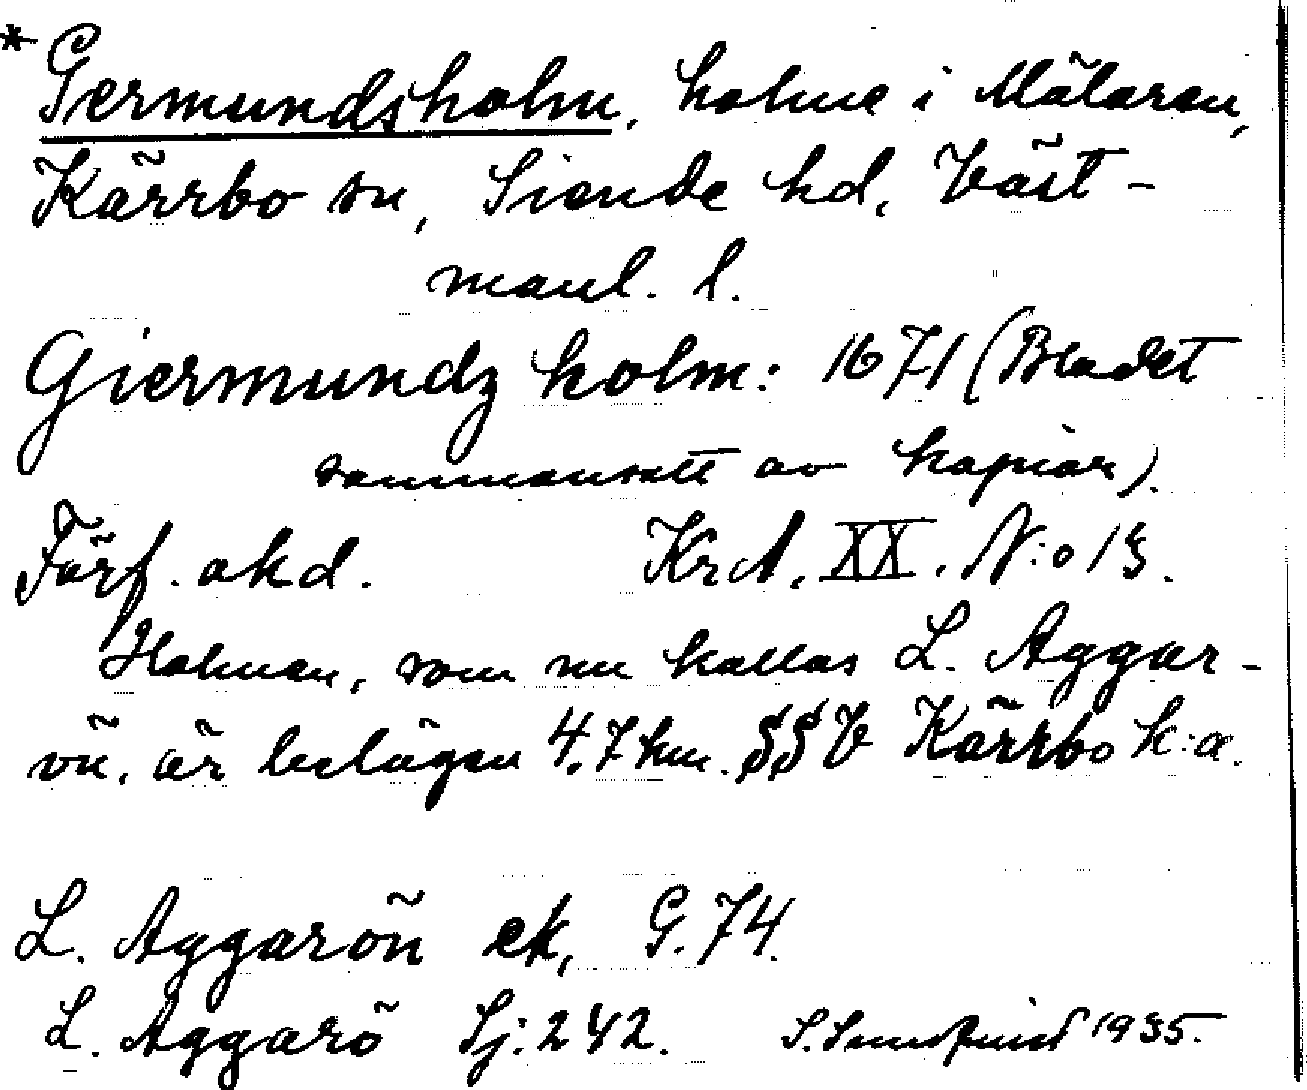 * Germundsholm, holme i Mälaren,
Kärrbo sn, Siende hd, Väst-
manl. l.
Giermundz holm: 1671 (Bladet
sammansatt av kopior).
Förf. okd. KrA. XX. N:o 13.
Holmen, som nu kallas L. Aggar-
ön, är belägen 4,7 km. SSV Kärrbo k:a.
L. Aggarön ek, G. 74.
L. Aggarö Sj: 242. 1935.